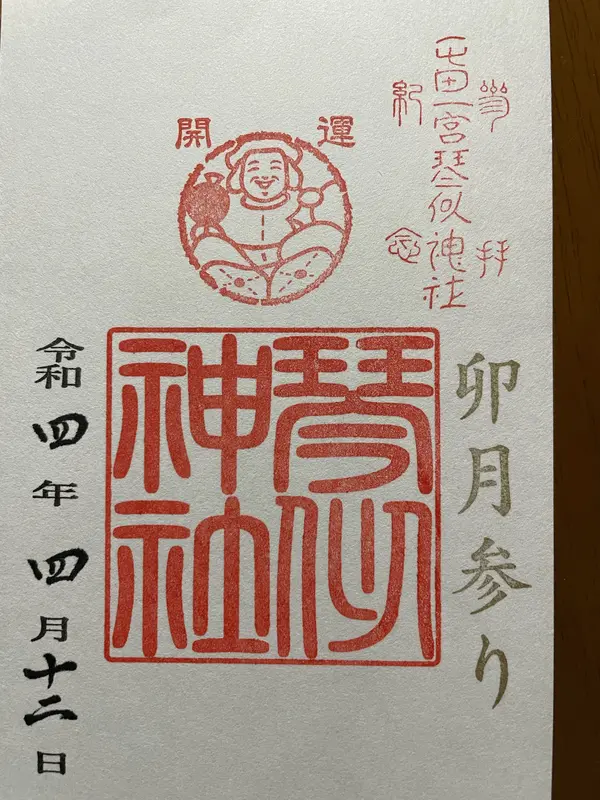 參拝
屯田一宮琴似神社
紀念
開運
卯月参り
琴似
神社
令和四年四月十二日